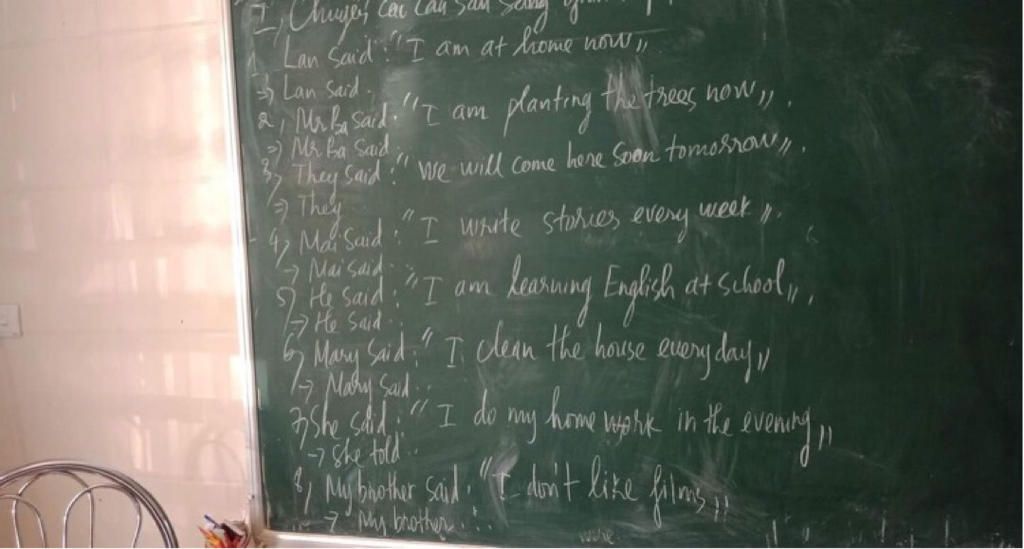 I, Chuyển các câu sau sang
1, Lan said: "I am at home now,,
=> Lan said.
2, Mr Ba said: "I am planting the trees now,,.
=> Mr Ba said.
3, They said: "We will come here soon tomorrow,,.
=> They
4, Mai said: "I write stories every week,,.
-> Mai said..
5, He said: "I am learning English at school,,.
-> He said..
6, Mary said: "I clean the house every day,,
-> Mary said..
7, She said: "I do my home work in the evening,,
-> She told..
8, My brother said: "I don't like films,,
-> My brother...